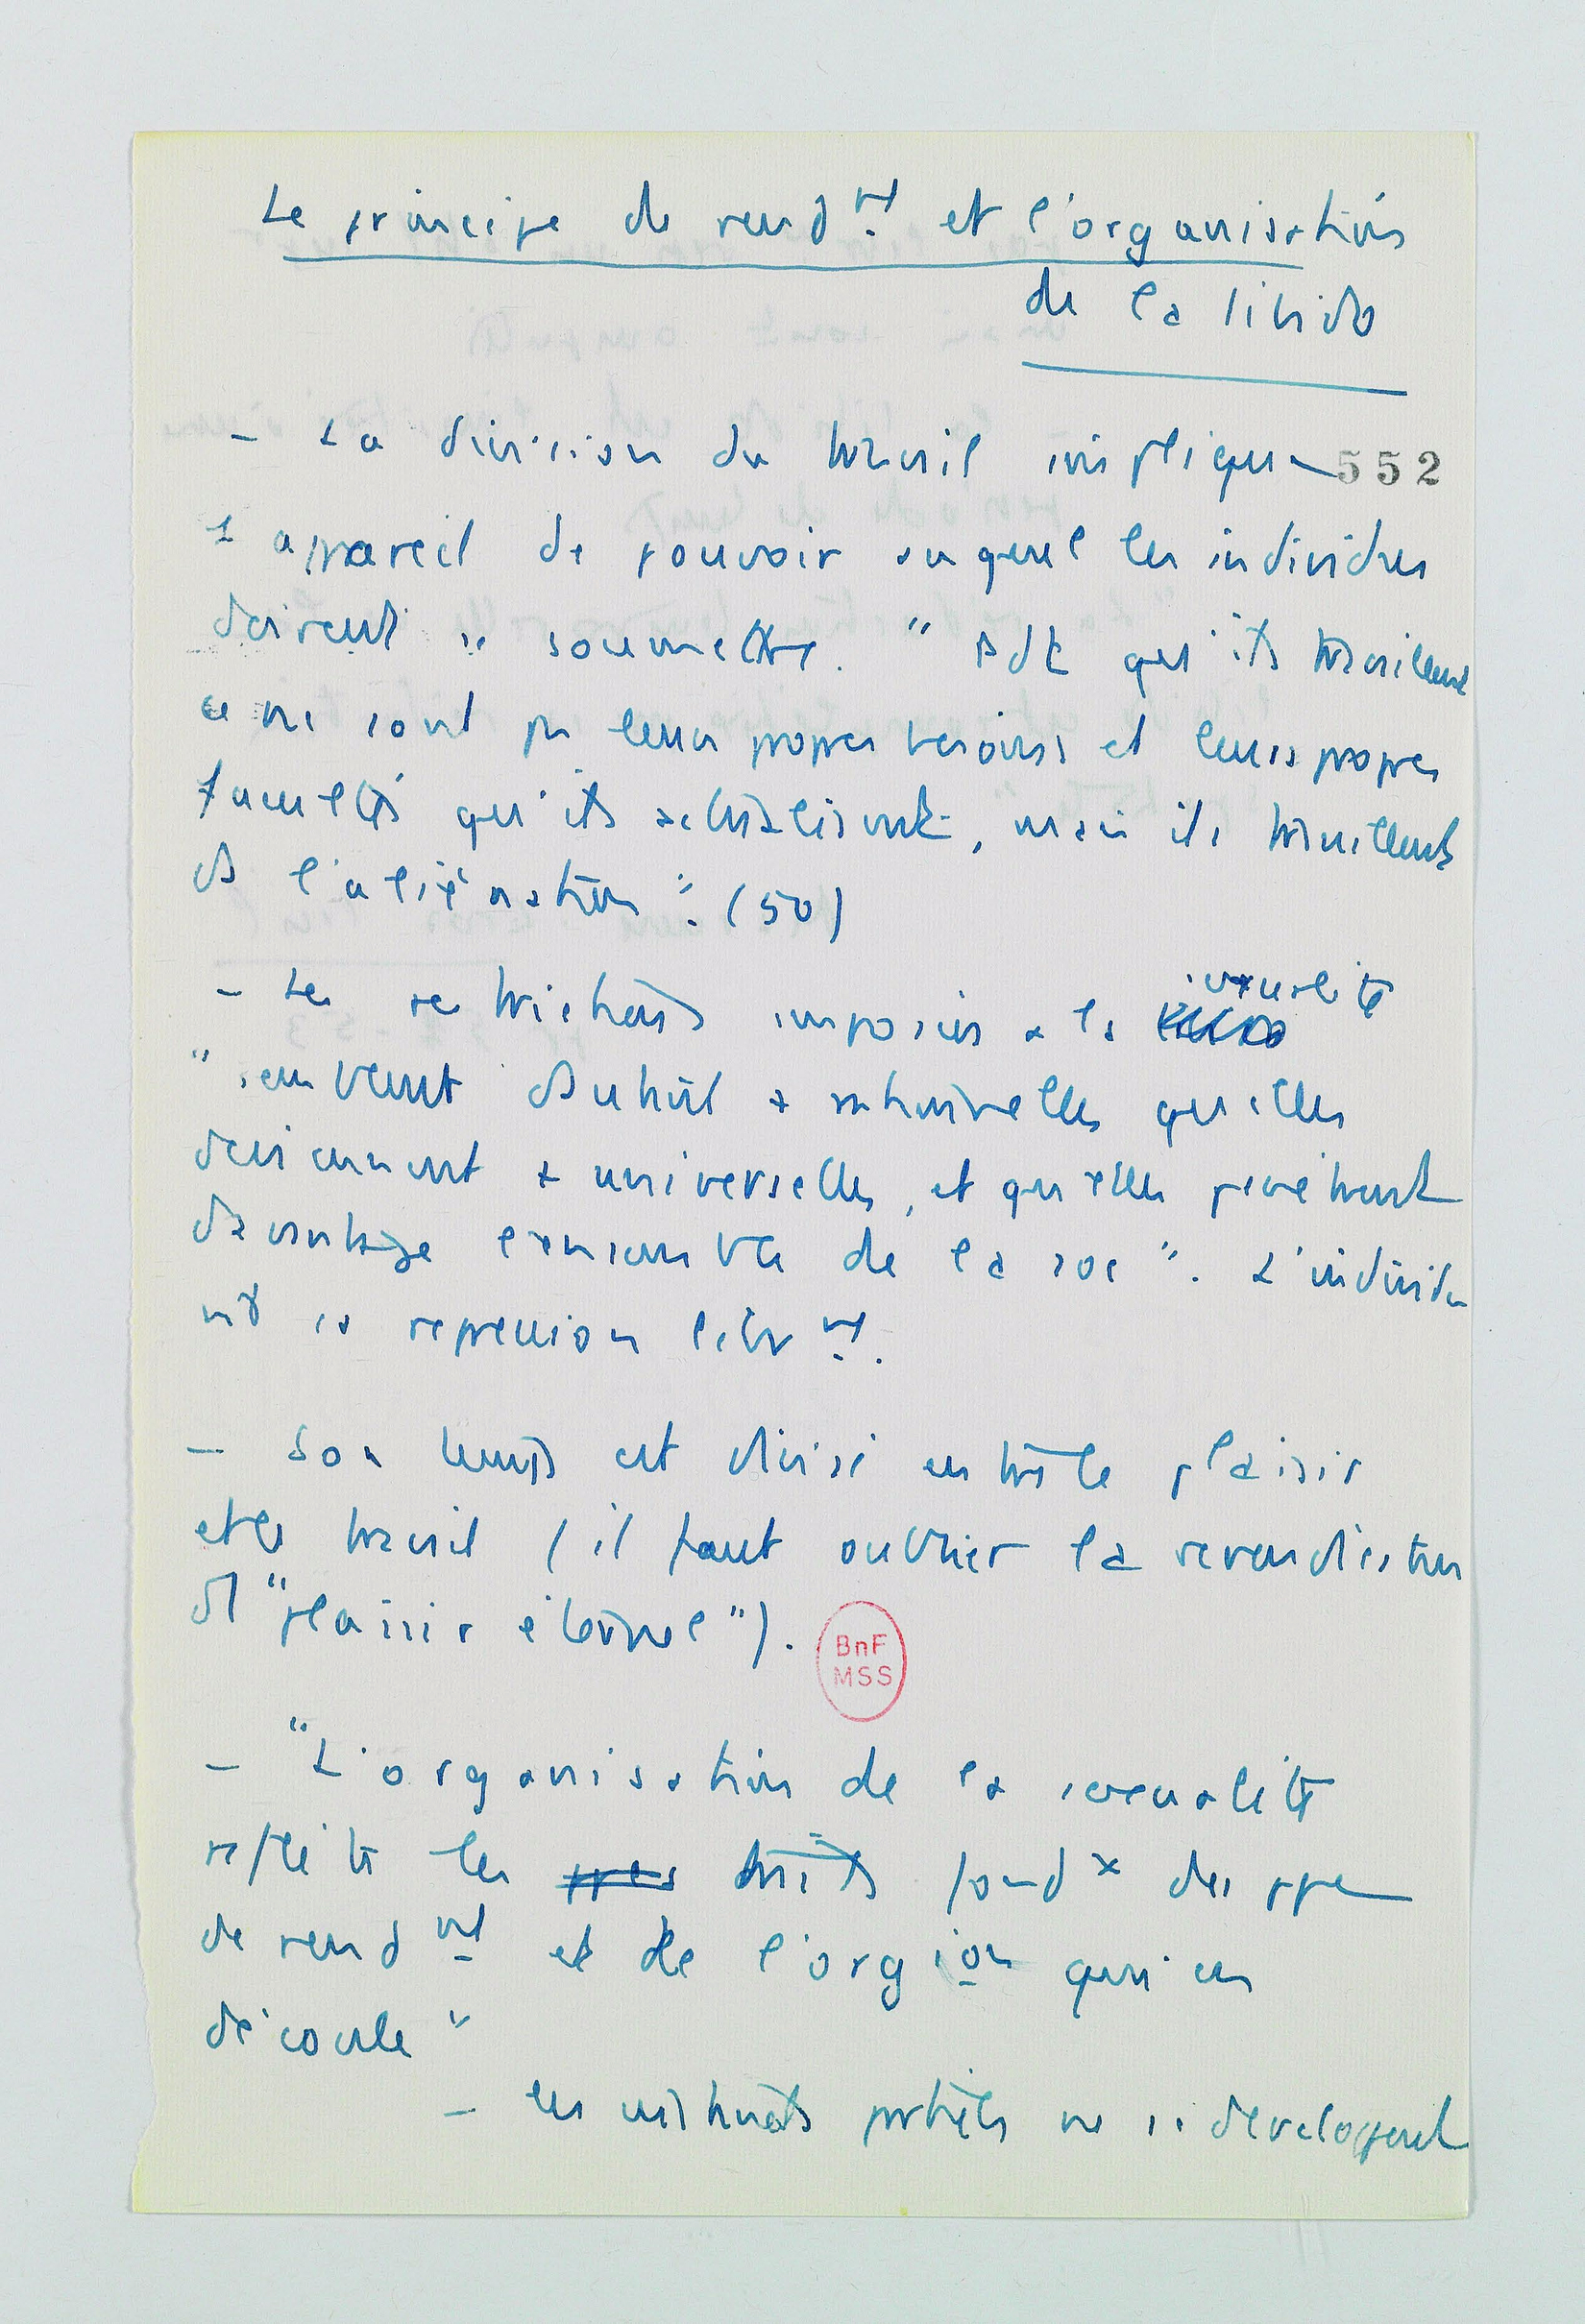 Le principe de rend^nt et l'organisation
de la libido
552
- La division du travail implique
l'appareil de pouvoir auquel les individus
doivent se soumettre. " Pdt qu'ils travaillent
ce ne sont pas leurs propres besoins et leurs propres
facultés qu'ils actualisent, mais ils travaillent
ds l'aliénation". (50)
- Les restrictions imposées à la sexualité
"semblent d'autant + rationnelles qu'elles
deviennent + universelles, et qu'elles pénètrent
davantage l'ensemble de la soc". L'individu
vit sa répression libr^nt.
- Son temps est divisé entre le plaisir
et le travail (il faut oublier la revendication
d'1 "plaisir éternel").
BnF
MSS
- "L'organisation de la sexualité
reflète les traits fond^x des ppe
de rend^nt et de l'org^ion qui en
découle"
- les instincts partiels ne se développent